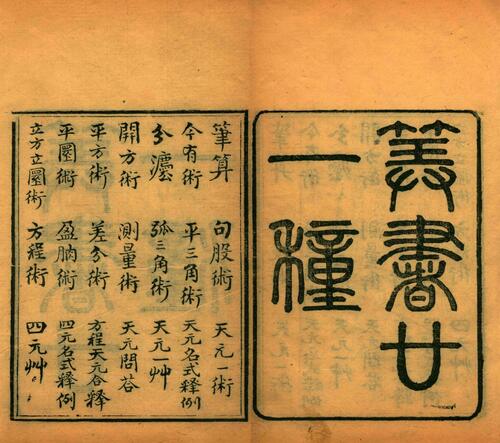 算書廿
一種
筆算 句股術 天元一術
今有術 平三角術 天元名式釋例
分灋 弧三角術 天元一艸
開方術 測量術 天元問荅
平方術 差分術 方程天元合釋
平圜術 盈朒術 四元名式釋例
立方立圜術 方程術 四元艸